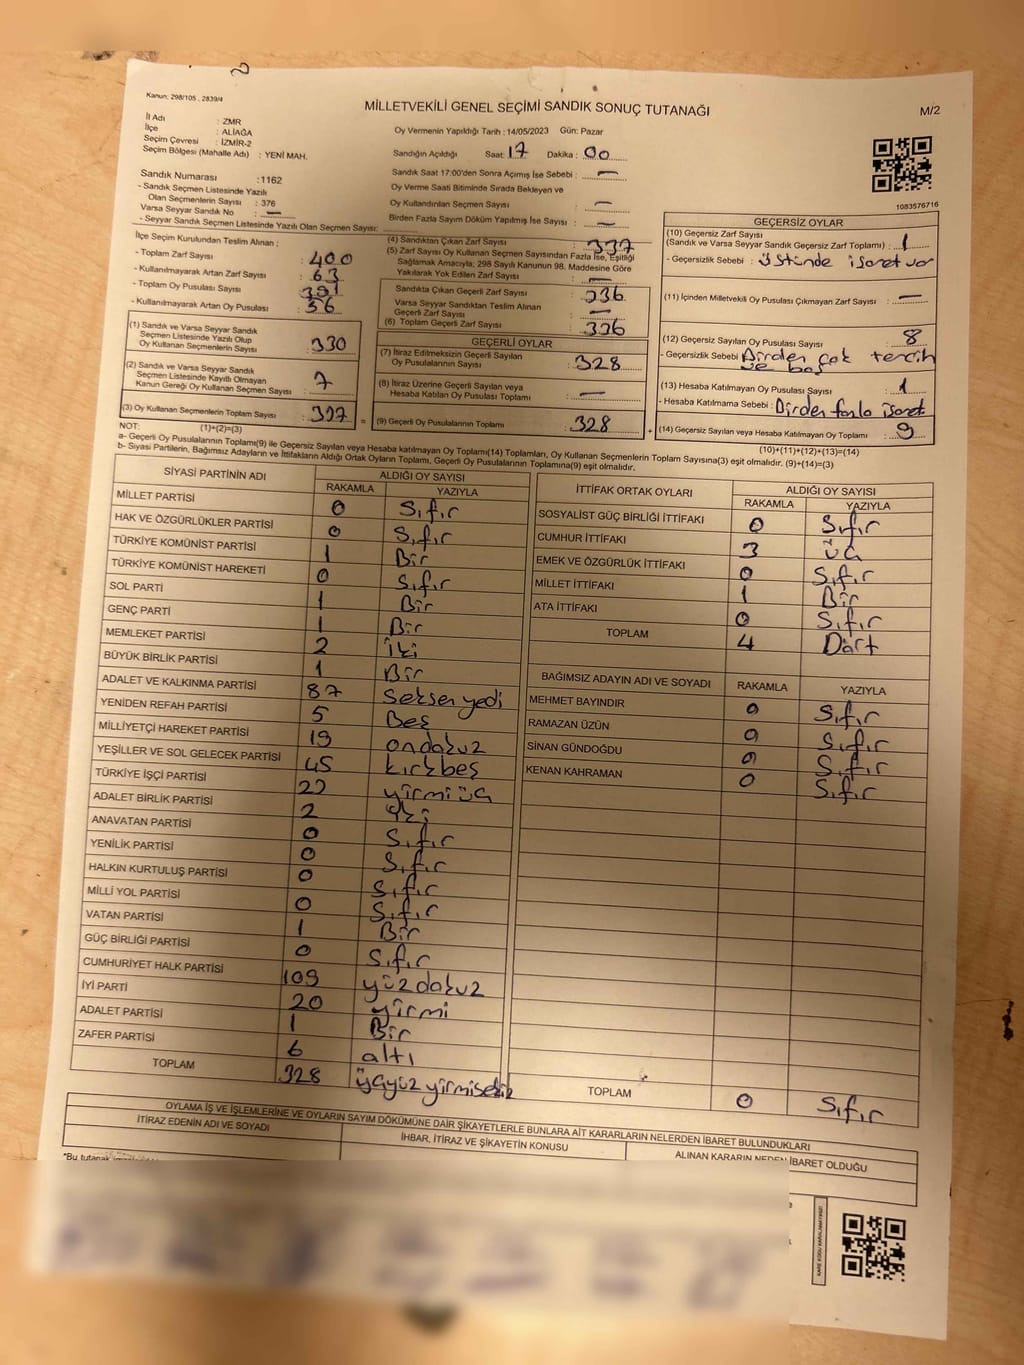 Kanun: 298/105 , 2839/4
MİLLETVEKİLİ GENEL SEÇİMİ SANDIK SONUÇ TUTANAĞI
M/2
İl Adı : ZMR
İlçe : ALİAĞA
Seçim Çevresi : İZMİR-2
Seçim Bölgesi (Mahalle Adı) : YENİ MAH.
Sandık Numarası :1162
- Sandık Seçmen Listesinde Yazılı
Olan Seçmenlerin Sayısı : 376
Varsa Seyyar Sandık No : —
- Seyyar Sandık Seçmen Listesinde Yazılı Olan Seçmen Sayısı:
Oy Vermenin Yapıldığı Tarih : 14/05/2023 Gün: Pazar
Sandığın Açıldığı Saat: 17 Dakika : 00
Sandık Saat 17:00'den Sonra Açımış İse Sebebi : —
Oy Verme Saati Bitiminde Sırada Bekleyen ve
Oy Kullandırılan Seçmen Sayısı : —
Birden Fazla Sayım Döküm Yapılmış İse Sayısı : —
1083576716
İlçe Seçim Kurulundan Teslim Alınan ;
- Toplam Zarf Sayısı : 400
- Kullanılmayarak Artan Zarf Sayısı : 63
- Toplam Oy Pusulası Sayısı : 391
- Kullanılmayarak Artan Oy Pusulası : 56
(1) Sandık ve Varsa Seyyar Sandık
Seçmen Listesinde Yazılı Olup
Oy Kullanan Seçmenlerin Sayısı : 330
(2) Sandık ve Varsa Seyyar Sandık
Seçmen Listesinde Kayıtlı Olmayan
Kanun Gereği Oy Kullanan Seçmen Sayısı : 7
(3) Oy Kullanan Seçmenlerin Toplam Sayısı : 337
(4) Sandıktan Çıkan Zarf Sayısı : 337
(5) Zarf Sayısı Oy Kullanan Seçmen Sayısından Fazla İse, Eşitliği
Sağlamak Amacıyla; 298 Sayılı Kanunun 98. Maddesine Göre
Yakılarak Yok Edilen Zarf Sayısı : —
Sandıkta Çıkan Geçerli Zarf Sayısı : 336
Varsa Seyyar Sandıktan Teslim Alınan
Geçerli Zarf Sayısı : —
(6) Toplam Geçerli Zarf Sayısı : 336
GEÇERLİ OYLAR
(7) İtiraz Edilmeksizin Geçerli Sayılan
Oy Pusulalarının Sayısı : 328
(8) İtiraz Üzerine Geçerli Sayılan veya
Hesaba Katılan Oy Pusulası Toplamı : —
= (9) Geçerli Oy Pusulalarının Toplamı : 328 +
GEÇERSİZ OYLAR
(10) Geçersiz Zarf Sayısı
(Sandık ve Varsa Seyyar Sandık Geçersiz Zarf Toplamı) : 1
- Geçersizlik Sebebi : üstünde işaret var
(11) İçinden Milletvekili Oy Pusulası Çıkmayan Zarf Sayısı : —
(12) Geçersiz Sayılan Oy Pusulası Sayısı : 8
- Geçersizlik Sebebi : Birden çok tercih
ve boş
(13) Hesaba Katılmayan Oy Pusulası Sayısı : 1
- Hesaba Katılmama Sebebi : Birden fazla işaret
(14) Geçersiz Sayılan veya Hesaba Katılmayan Oy Pusulası Toplamı : 9
NOT: (1)+(2)=(3)
(10)+(11)+(12)+(13)=(14)
a- Geçerli Oy Pusulalarının Toplamı(9) ile Geçersiz Sayılan veya Hesaba Katılmayan Oy Toplamı(14) Toplamları, Oy Kullanan Seçmenlerin Toplam Sayısına(3) eşit olmalıdır. (9)+(14)=(3)
b- Siyasi Partilerin, Bağımsız Adayların ve İttifakların Aldığı Ortak Oyların Toplamı, Geçerli Oy Pusulalarının Toplamına(9) eşit olmalıdır.
SİYASİ PARTİNİN ADI ALDIĞI OY SAYISI
RAKAMLA YAZIYLA
MİLLET PARTİSİ 0 Sıfır
HAK VE ÖZGÜRLÜKLER PARTİSİ 0 Sıfır
TÜRKİYE KOMÜNİST PARTİSİ 1 Bir
TÜRKİYE KOMÜNİST HAREKETİ 0 Sıfır
SOL PARTİ 1 Bir
GENÇ PARTİ 1 Bir
MEMLEKET PARTİSİ 2 İki
BÜYÜK BİRLİK PARTİSİ 1 Bir
ADALET VE KALKINMA PARTİSİ 87 Seksen yedi
YENİDEN REFAH PARTİSİ 5 Beş
MİLLİYETÇİ HAREKET PARTİSİ 19 ondokuz
YEŞİLLER VE SOL GELECEK PARTİSİ 45 kırkbeş
TÜRKİYE İŞÇİ PARTİSİ 23 yirmi üç
ADALET BİRLİK PARTİSİ 2 İki
ANAVATAN PARTİSİ 0 Sıfır
YENİLİK PARTİSİ 0 Sıfır
HALKIN KURTULUŞ PARTİSİ 0 Sıfır
MİLLİ YOL PARTİSİ 0 Sıfır
VATAN PARTİSİ 1 Bir
GÜÇ BİRLİĞİ PARTİSİ 0 Sıfır
CUMHURİYET HALK PARTİSİ 109 yüz dokuz
İYİ PARTİ 20 yirmi
ADALET PARTİSİ 1 Bir
ZAFER PARTİSİ 6 altı
TOPLAM 328 üçyüz yirmisekiz
İTTİFAK ORTAK OYLARI ALDIĞI OY SAYISI
RAKAMLA YAZIYLA
SOSYALİST GÜÇ BİRLİĞİ İTTİFAKI 0 Sıfır
CUMHUR İTTİFAKI 3 üç
EMEK VE ÖZGÜRLÜK İTTİFAKI 0 Sıfır
MİLLET İTTİFAKI 1 Bir
ATA İTTİFAKI 0 Sıfır
TOPLAM 4 Dört
BAĞIMSIZ ADAYIN ADI VE SOYADI RAKAMLA YAZIYLA
MEHMET BAYINDIR 0 Sıfır
RAMAZAN ÜZÜN 0 Sıfır
SİNAN GÜNDOĞDU 0 Sıfır
KENAN KAHRAMAN 0 Sıfır
TOPLAM 0 Sıfır
OYLAMA İŞ VE İŞLEMLERİNE VE OYLARIN SAYIM DÖKÜMÜNE DAİR ŞİKAYETLERLE BUNLARA AİT KARARLARIN NELERDEN İBARET BULUNDUKLARI
İTİRAZ EDENİN ADI VE SOYADI
İHBAR, İTİRAZ VE ŞİKAYETİN KONUSU
ALINAN KARARIN NEDEN İBARET OLDUĞU
"Bu tutanak
KARE KODU KARALAMAYINIZ!